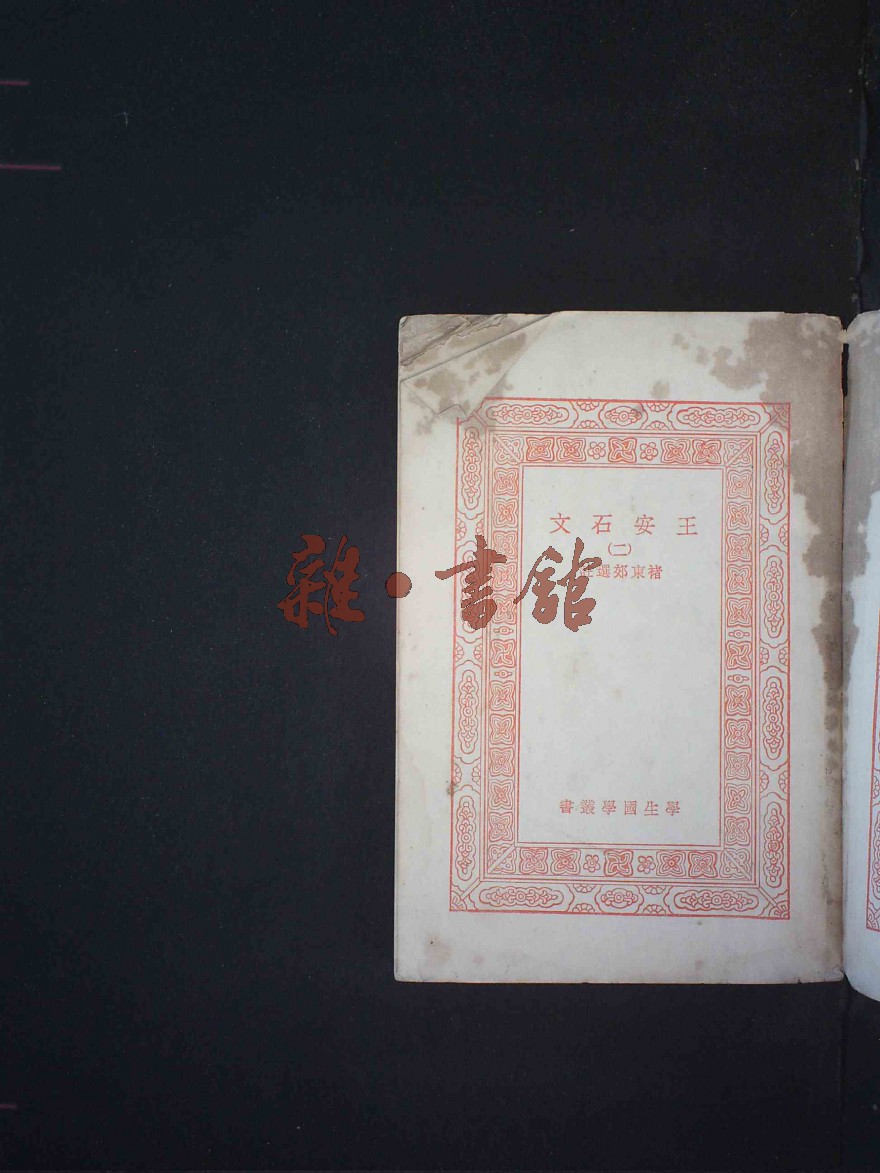 王安石文
(二)
褚東郊選
學生國學叢書
雜·書館